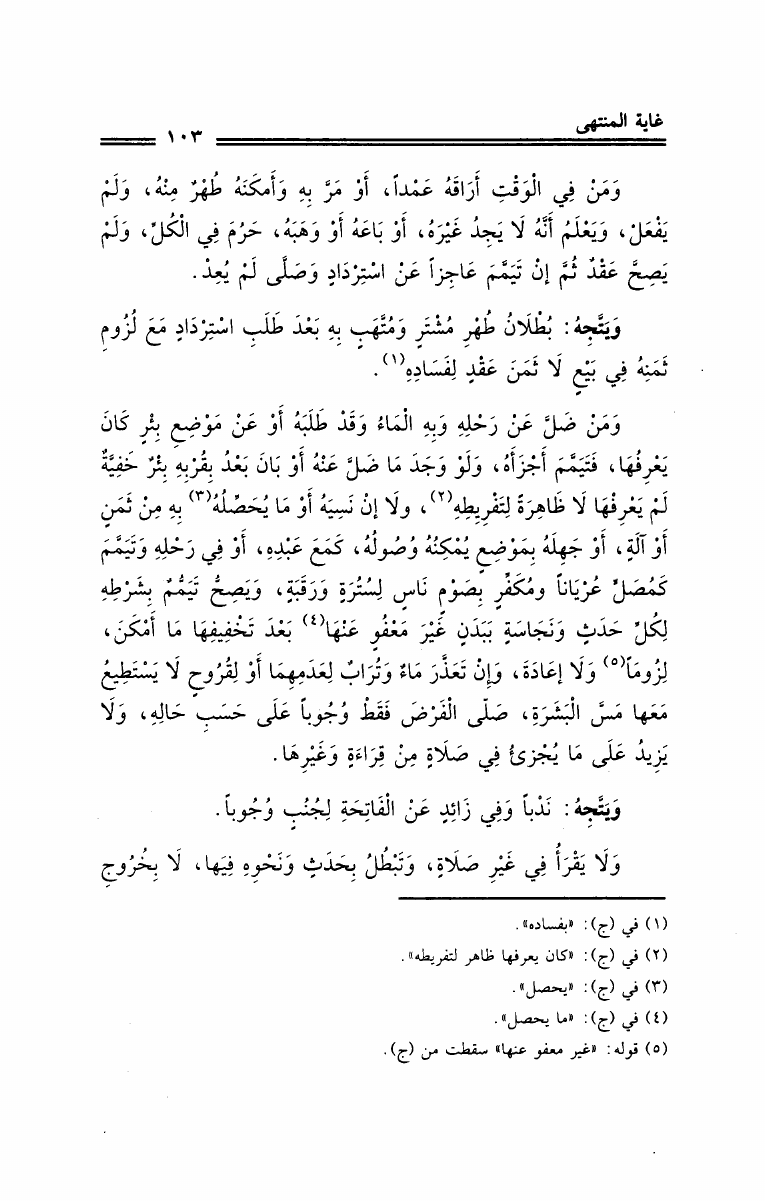 غاية المنتهى
١٠٣
وَمَنْ فِي الْوَقْتِ أَرَاقَهُ عَمْداً، أَوْ مَرَّ بِهِ وَأَمكَنَهُ طُهْرٌ مِنْهُ، وَلَمْ
يَفْعَلْ، وَيَعْلَمُ أَنَّهُ لَا يَجِدُ غَيْرَهُ، أَوْ بَاعَهُ أَوْ وَهَبَهُ، حَرُمَ فِي الْكُلِّ، وَلَمْ
يَصِحَّ عَقْدٌ ثُمَّ إنْ تَيَمَّمَ عَاجِزاً عَنْ اسْتِرْدَادٍ وَصَلَّى لَمْ يُعِدْ.
وَيَتَّجِهُ: بُطْلَانُ طُهْرِ مُشْتَرٍ وَمُتَّهَبٍ بِهِ بَعْدَ طَلَبِ اسْتِرْدَادٍ مَعَ لُزُومِ
ثَمَنِهُ فِي بَيْعٍ لَا ثَمَنَ عَقْدٍ لِفَسَادِهِ(١).
وَمَنْ ضَلَّ عَنْ رَحْلِهِ وَبِهِ الْمَاءُ وَقَدْ طَلَبَهُ أَوْ عَنْ مَوْضِعِ بِئْرٍ كَانَ
يَعْرِفُهَا، فَتَيَمَّمَ أَجْزَأَهُ، وَلَوْ وَجَدَ مَا ضَلَّ عَنْهُ أَوْ بَانَ بَعْدُ بِقُرْبِهِ بِئْرٌ خَفِيَّةٌ
لَمْ يَعْرِفْهَا لَا ظَاهِرَةً لِتَفْرِيطِهِ(٢)، ولَا إنْ نَسِيَهُ أَوْ مَا يُحَصِّلُهُ(٣) بِهِ مِنْ ثَمَنٍ
أَوْ آلَةٍ، أَوْ جَهِلَهُ بِمَوْضِعٍ يُمْكِنُهُ وُصُولُهُ، كَمَعَ عَبْدِهِ، أَوْ فِي رَحْلِهِ وَتَيَمَّمَ
كَمُصَلٍّ عُرْيَاناً ومُكَفِّرٍ بِصَوْمٍ نَاسٍ لِسُتْرَةٍ وَرَقَبَةٍ، وَيَصِحُّ تَيَمُّمٌ بِشَرْطِهِ
لِكُلِّ حَدَثٍ وَنَجَاسَةٍ بَبَدَنٍ غَيْرَ مَعْفُوٍ عَنْهَا(٤) بَعْدَ تَخْفِيفِهَا مَا أَمْكَنَ،
لِزُوماً(٥) وَلَا إعَادَةَ، وَإِنْ تَعَذَّرَ مَاءٌ وَتُرَابٌ لِعَدَمِهِمَا أَوْ لِقُرُوحٍ لَا يَسْتَطِيعُ
مَعَها مَسَّ الْبَشَرَةِ، صَلّى الْفَرْضَ فَقَطْ وُجُوباً عَلَى حَسَبِ حَالِهِ، وَلَا
يَزِيدُ عَلَى مَا يُجْزِئُ فِي صَلَاةٍ مِنْ قِرَاءَةٍ وَغَيْرِهَا.
وَيَتَّجِهُ: نَدْباً وَفِي زَائِدٍ عَنْ الْفَاتِحَةِ لِجُنُبٍ وُجُوباً.
وَلَا يَقْرَأُ فِي غَيْرِ صَلَاةٍ، وَتَبْطُلُ بِحَدَثٍ وَنَحْوِهِ فِيَها، لَا بِخُرُوجِ
(١) في (ج): «بفساده».
(٢) في (ج): «كان يعرفها ظاهر لتفريطه».
(٣) في (ج): «يحصل».
(٤) في (ج): «ما يحصل».
(٥) قوله: «غير معفو عنها» سقطت من (ج).